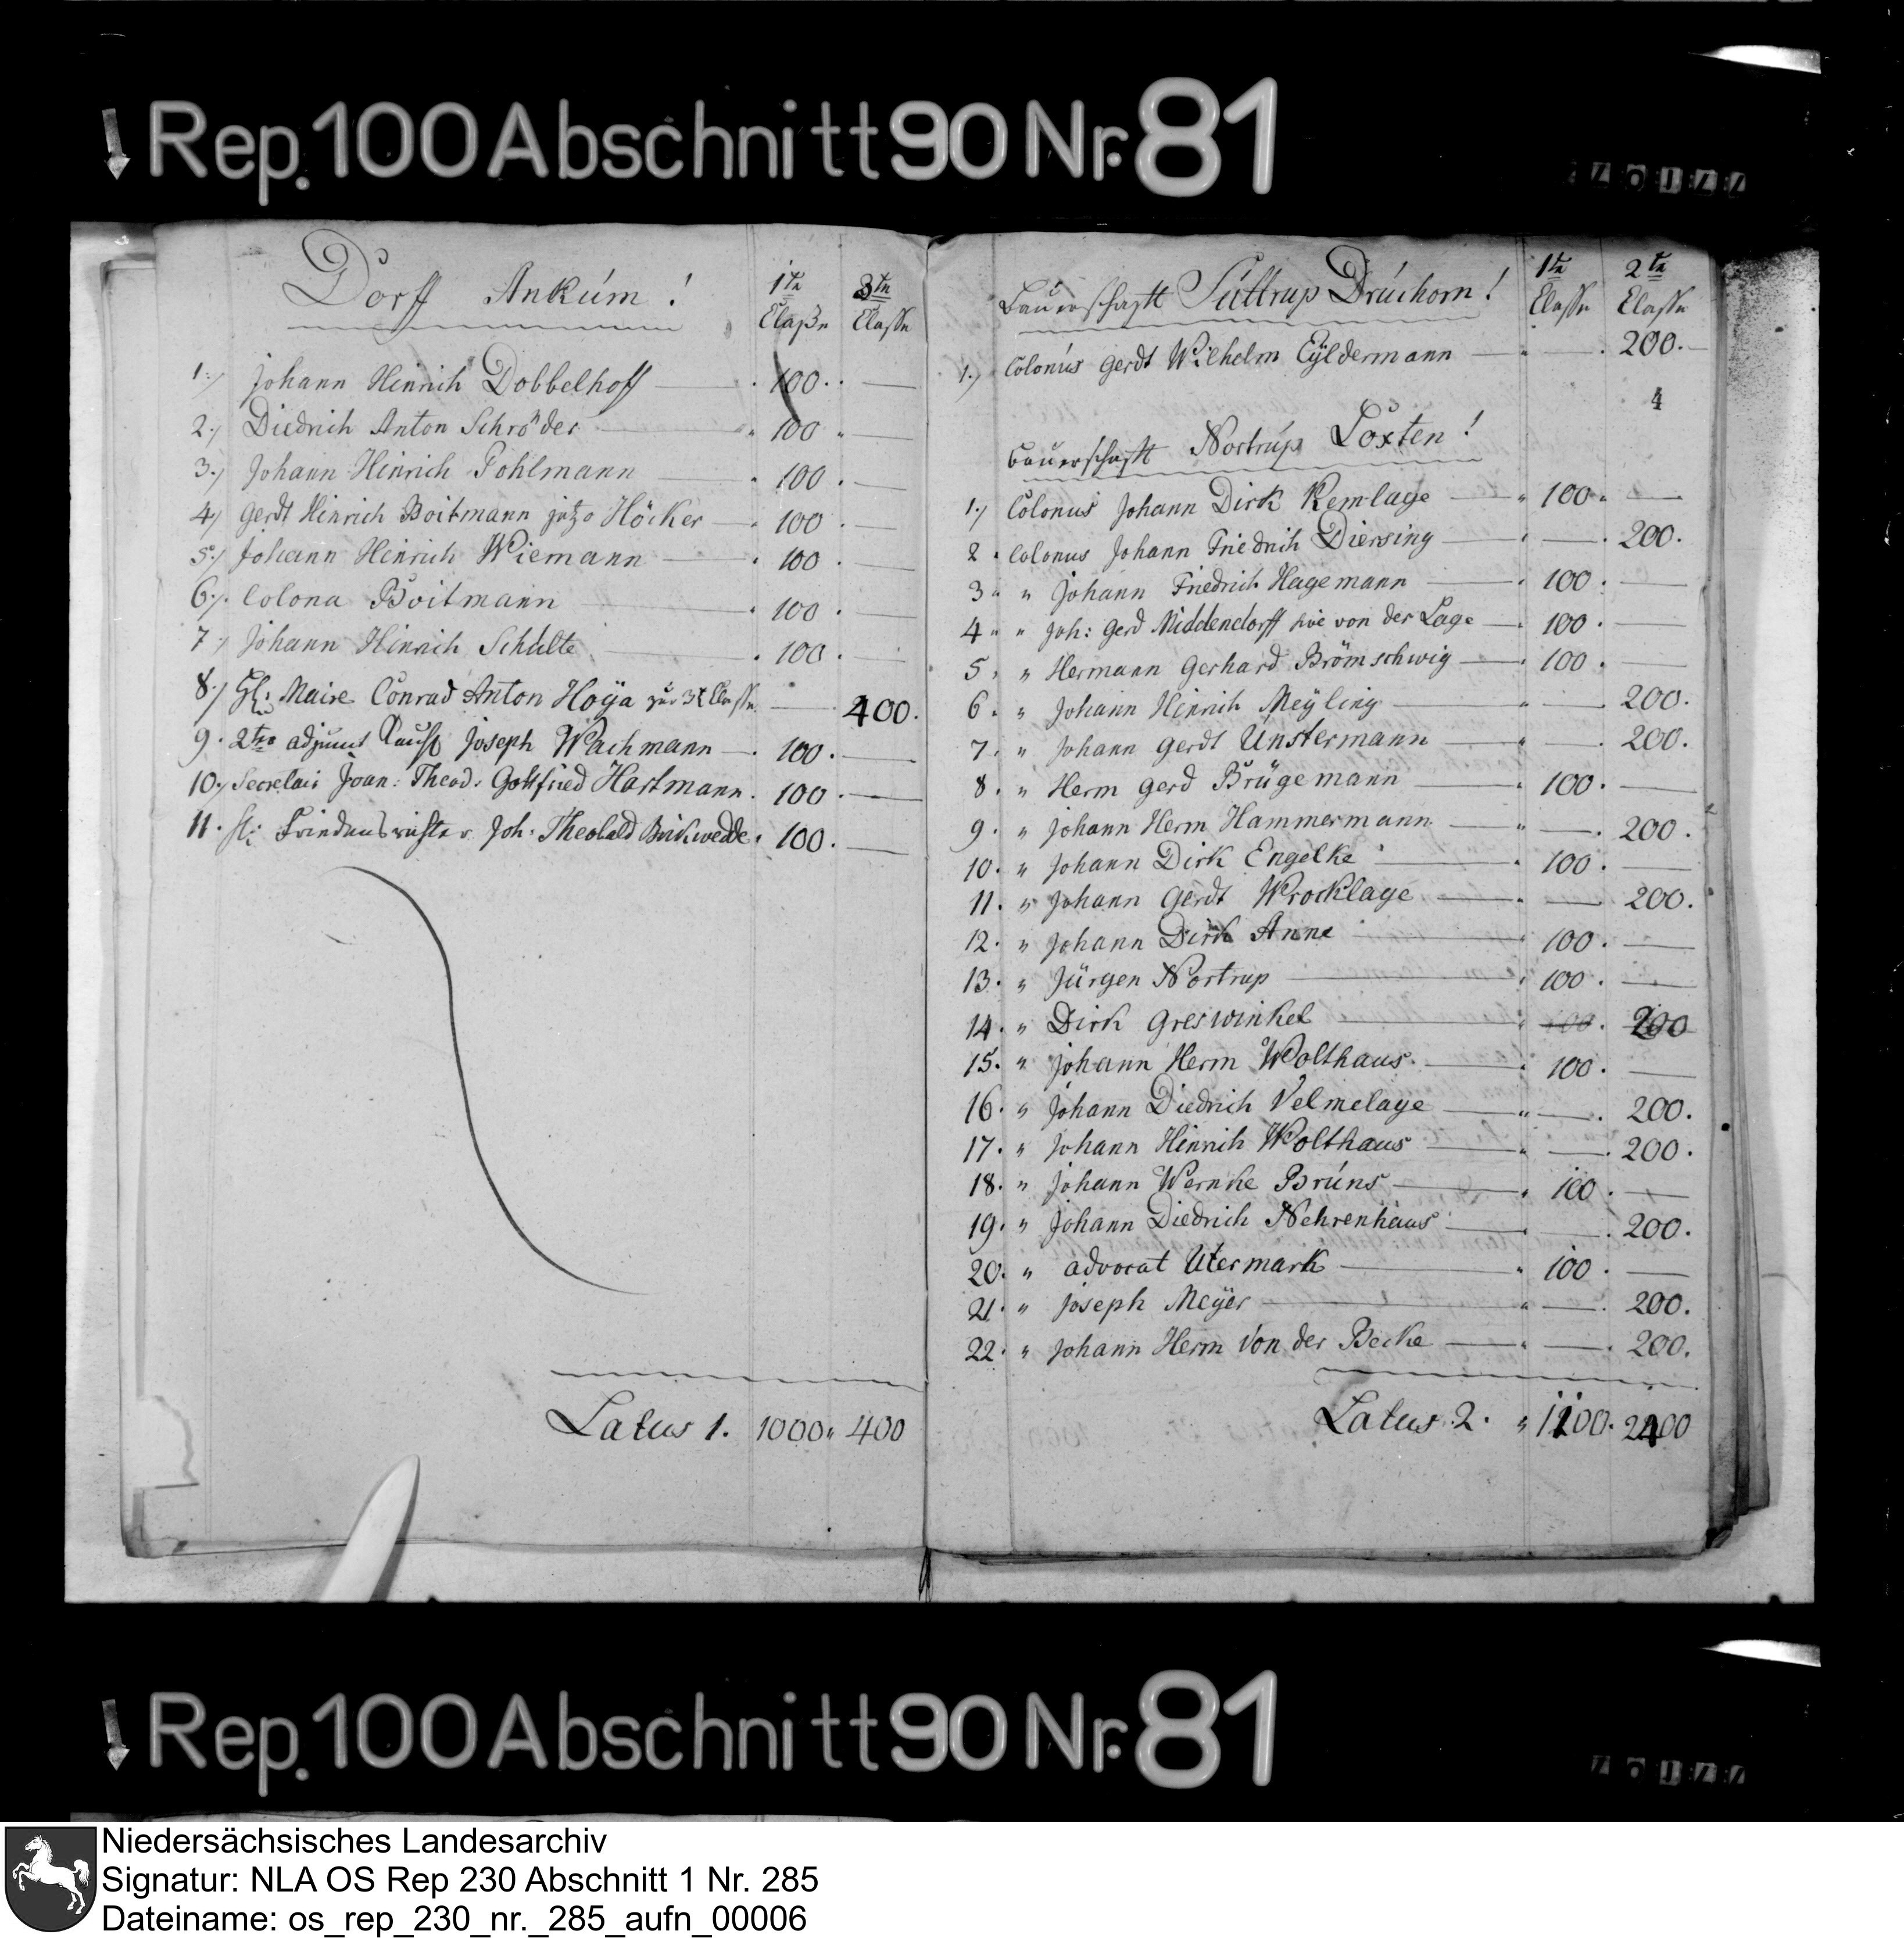 Rep. 100 Abschnitt 90 Nr. 81
Dorff Ankúm! 1te Classe 3te Classe
1.) Johann Hinrich Dobbelhoff 100.
2.) Diedrich Anton Schröder 100
3.) Johann Hinrich Pohlmann 100.
4.) Gerdt Hinrich Boitmann jetzo Höcker 100
5.) Johann Heinrich Wiemann 100.
6.) Colona Boitmann 100.
7.) Johann Hinrich Schulte 100.
8.) Maire Conrad Anton Hoÿa zur 3t Classe 400.
9. 2ter adjunct Joseph Wachmann 100.
10.) Secretair Joan: Theod: Gottfried Hartmann. 100.
11. Friedensrichter Joh: Theobald 100.
Latus 1. 1000 " 400
Bauerschafft Súttrup Drúchorn! 1te Classe 2te Classe
1.) Colonús Gerdt Wilhelm Eÿldermann 200.
4
Bauerschafft Nortrúp Loxten!
1.) Colonus Johann Dirk Remlage 100.
2. Colonus Johann Friedrich Diersing 200.
3 " " Johann Friedrich Hagemann 100.
4 " " Joh: Gerd Middendorff sive von der Lage 100.
5. " Hermann Gerhard Brömschwig 100.
6. " Johann Hinrich Meÿling 200.
7. " Johann Gerdt Unstermann 200.
8. " Herm Gerd Brügemann 100.
9. " Johann Herm Hammermann 200.
10. " Johann Dirk Engelke 100.
11. " Johann Gerdt Wrocklage 200.
12. " Johann Dirk Anne 100.
13. " Jürgen Nortrup 100.
14. " Dirk Greswinkel 100. 200
15. " Johann Herm Wolthaus 100.
16. " Johann Diedrich Velmelage 200.
17. " Johann Hinrich Wolthaus 200.
18. " Johann Wernke Brúns 100.
19. " Johann Diedrich Nehrenhaus 200.
20. " advocat Utermark 100.
21. " Joseph Meÿer 200.
22. " Johann Herm Von der Becke 200.
Latus 2. " 1100. 2400
Rep. 100 Abschnitt 90 Nr. 81
Niedersächsisches Landesarchiv
Signatur: NLA OS Rep 230 Abschnitt 1 Nr. 285
Dateiname: os_rep_230_nr._285_aufn_00006